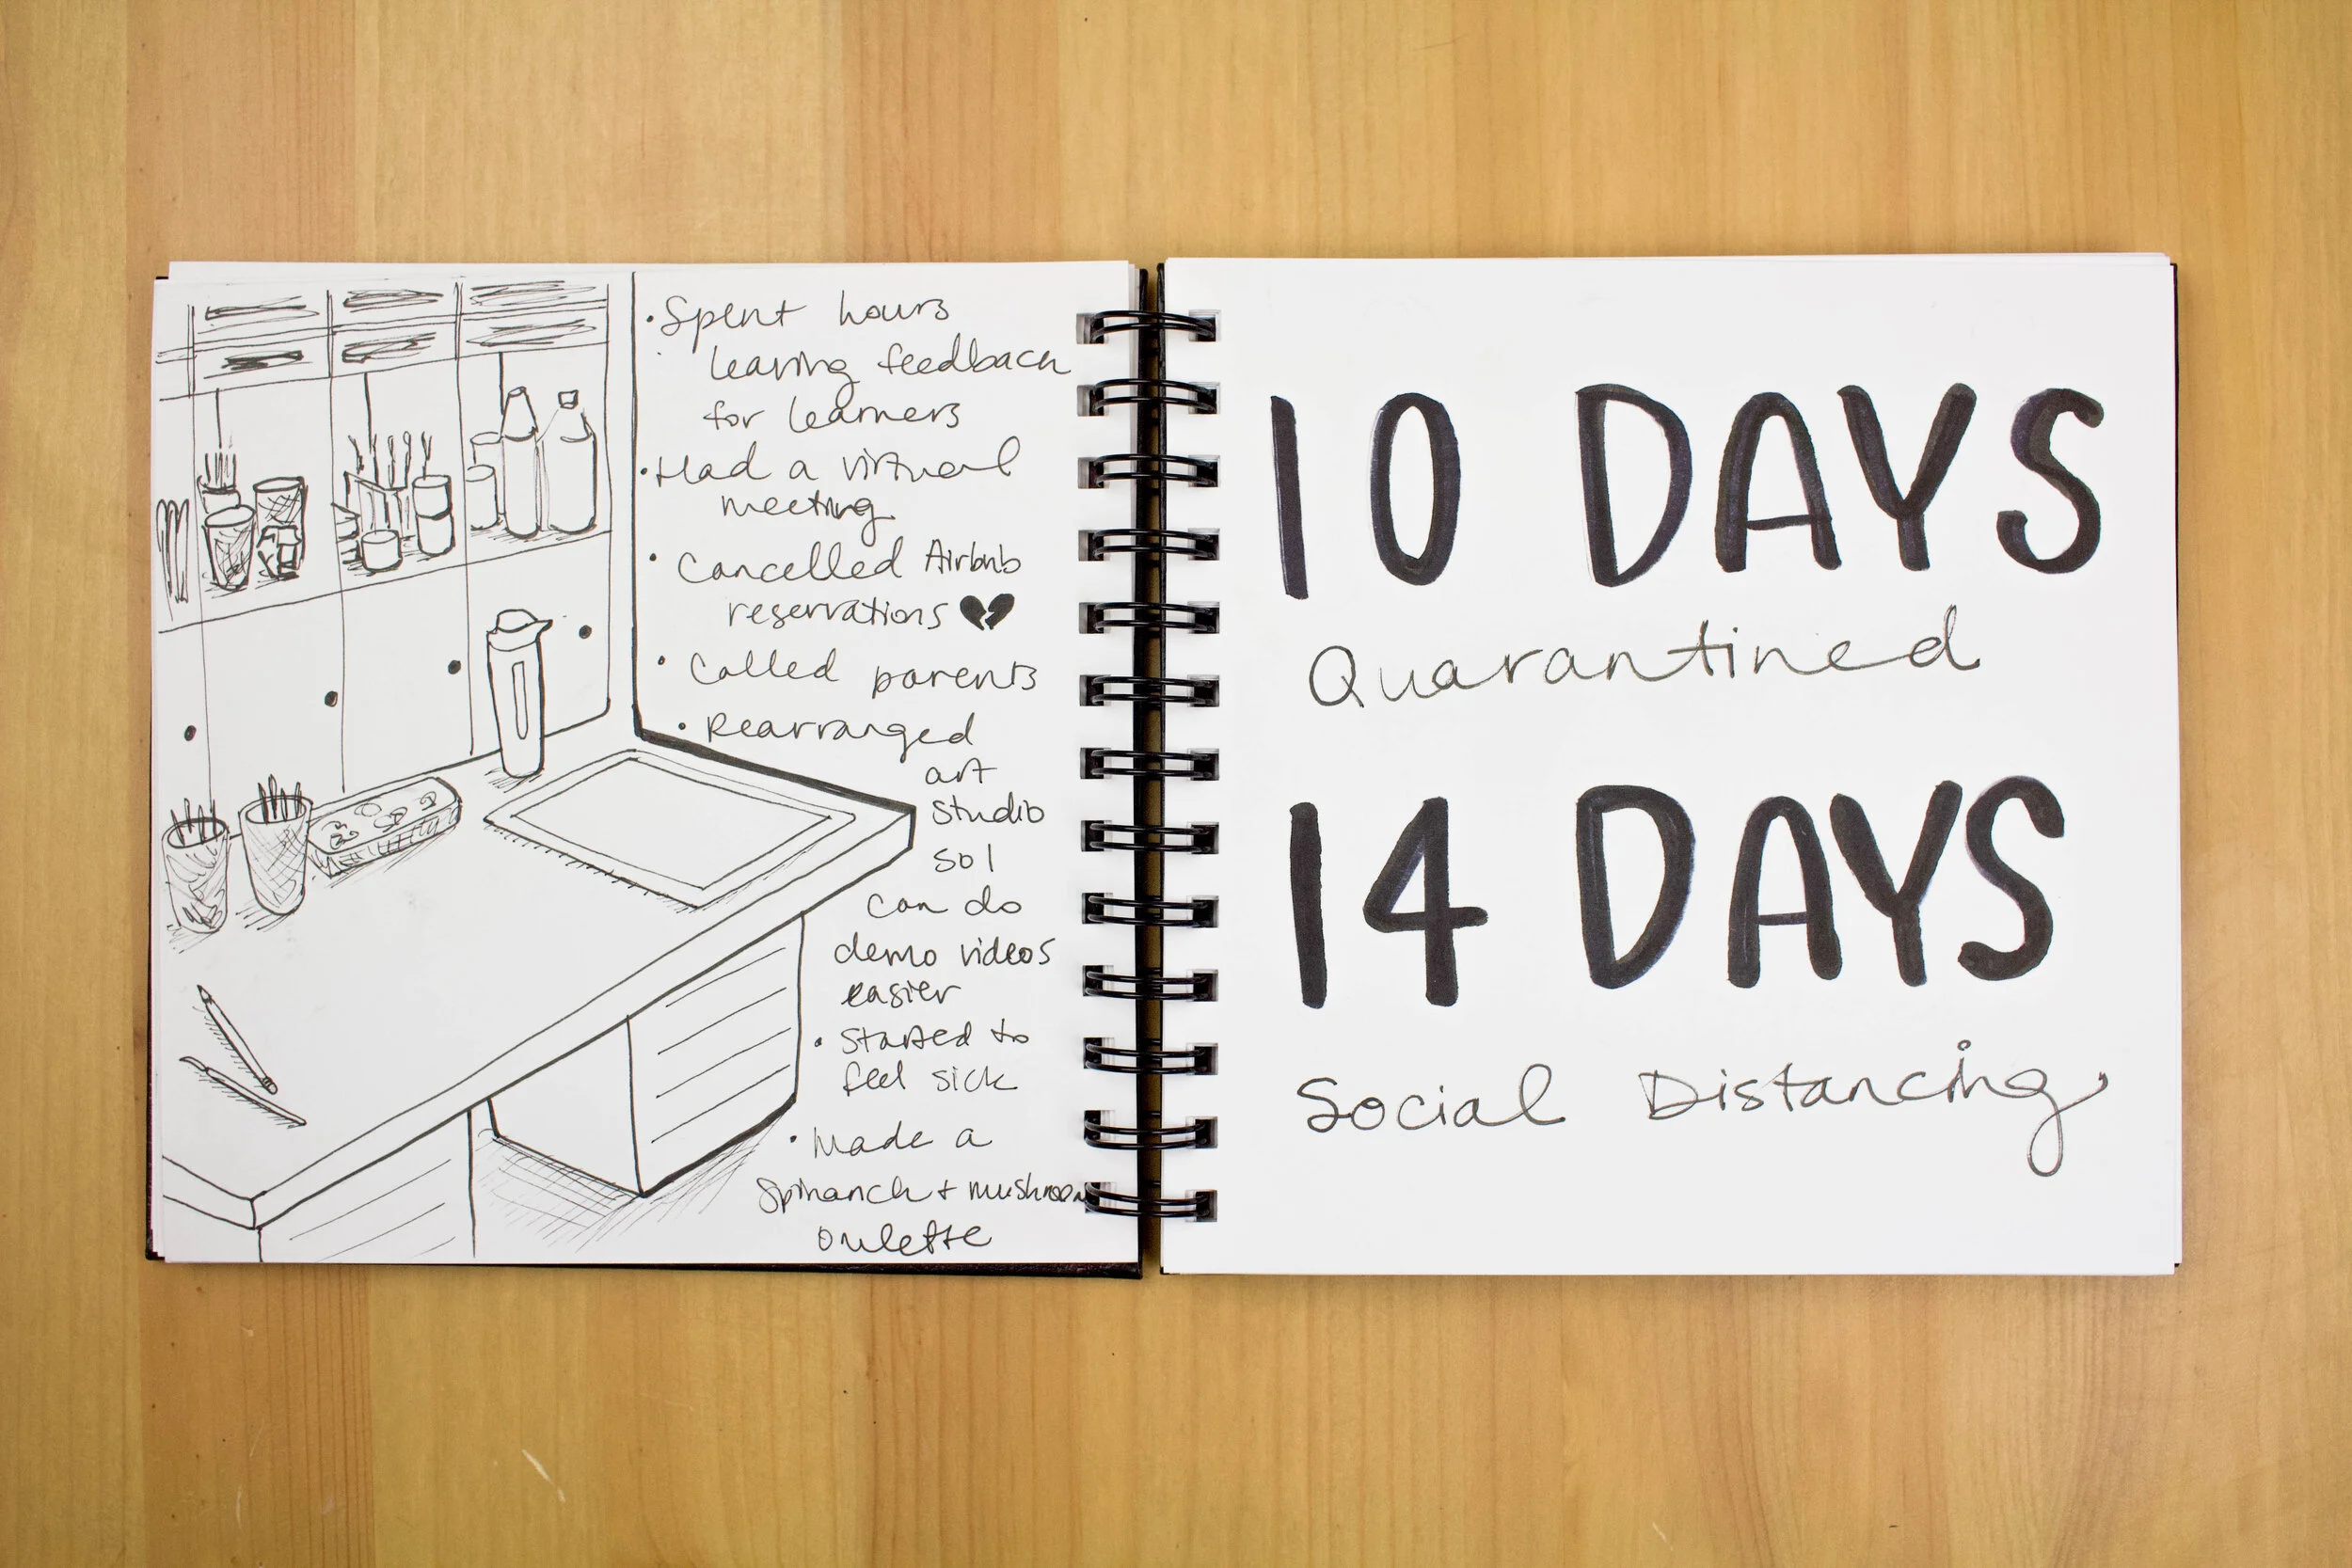 • Spent hours
leaving feedback
for learners
• Had a virtual
meeting
• Cancelled Airbnb
reservations 💔
• Called parents
• Rearranged
art
studio
so I
can do
demo videos
easier
• Started to
feel sick
• Made a
Spinanch + mushroom
omlette
10 DAYS
Quarantined
14 DAYS
Social Distancing